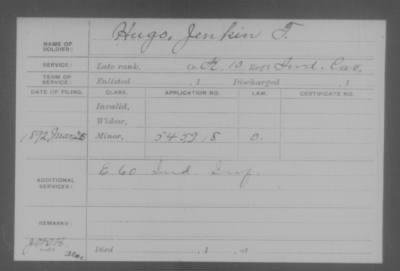 Hugo, Jenkin T.
NAME OF SOLDIER:
SERVICE: Late rank, Co. H. 10 Reg't Ind. Cav.
TERM OF SERVICE: Enlisted , 1 Discharged , 1
DATE OF FILING. CLASS. APPLICATION NO. LAW. CERTIFICATE NO.
Invalid,
Widow,
1892 Mar Minor, 545918
ADDITIONAL SERVICES: E 60 Ind. Inf.
REMARKS:
Died , 1 , at